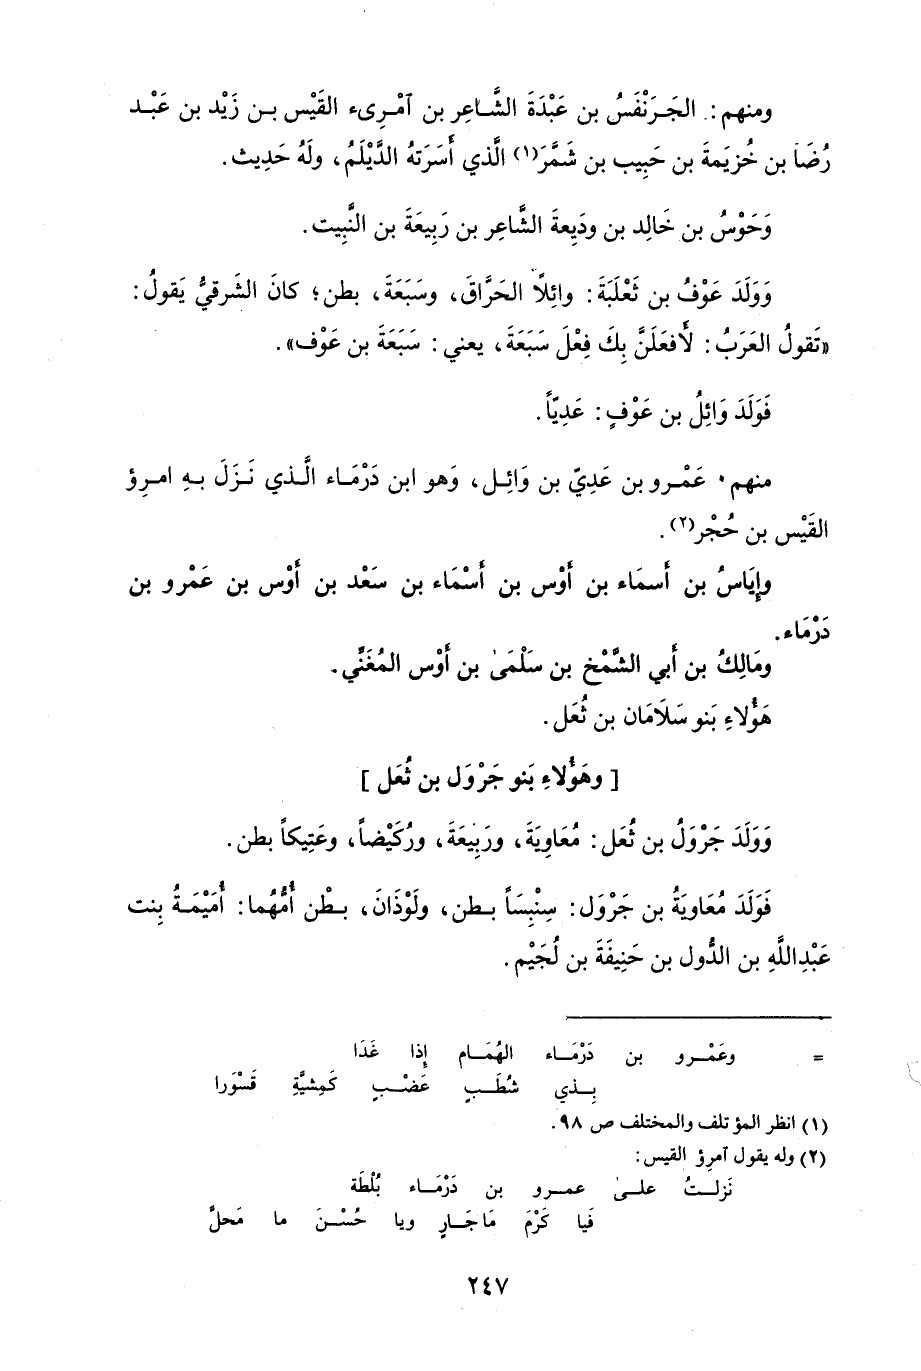 ومنهم : الجَرَنْفَسُ بن عَبْدَةَ الشَّاعِر بن آمْرِىء القَيْس بن زَيْد بن عَبْد
رُضَا بن خُزَيمةَ بن حَبِيب بن شَمَّرَ(١) الَّذي أَسَرَتهُ الدَّيْلَمُ ، ولَهُ حَدِيث .
وَحَوْسُ بن خَالِد بن ودَيِعةَ الشَّاعِر بن رَبِيعَةَ بن النَّبِيت .
وَوَلَدَ عَوْفُ بن ثَعْلَبَةَ : وائِلاً الحَرَّاقَ ، وسَبَعَةَ ، بطن ؛ كانَ الشَرقيُّ يَقولُ :
«تَقولُ العَرَبُ : لأَفعَلَنَّ بِكَ فِعْلَ سَبَعَةَ ، يعني : سَبَعَةَ بن عَوْف» .
فَوَلَدَ وَائِلُ بن عَوْفٍ : عَدِيّاً .
منهم : عَمْرو بن عَدِيّ بن وَائِل ، وَهو ابن دَرْمَاء الَّذي نَزَلَ بهِ امرؤ
القَيْس بن حُجْر(٢) .
وإيَاسُ بن أَسمَاء بن أَوْس بن أَسْمَاء بن سَعْد بن أَوْس بن عَمْرو بن
دَرْمَاء .
ومَالِكُ بن أَبي الشَّمْخ بن سَلْمَىٰ بن أَوْس المُغَنِّي .
هَؤُلاءِ بَنو سَلَامَان بن ثُعَل .
[ وهَؤُلاءِ بَنو جَرْوَل بن ثُعَل ]
وَوَلَدَ جَرْوَلُ بن ثُعَل : مُعَاوِيَةَ ، ورَبِيعَةَ ، ورُكَيْضاً ، وعَتِيكاً بطن .
فَوَلَدَ مُعَاويَةُ بن جَرْوَل : سِنْبِسَاً بطن ، ولَوْذَانَ ، بطْن أُمُّهُما : أُمَيْمَةُ بِنت
عَبْدِاللَّهِ بن الدُّول بن حَنِيفَةَ بن لُجَيْم .
= وعَمْرو بن دَرْمَاء الهُمَام إِذَا غَدَا
بِذي شُطَبٍ عَضْبٍ كَمِشيَّةِ قَسْوَرا
(١) انظر المؤتلف والمختلف ص ٩٨ .
(٢) وله يقول آمرؤ القيس :
نَزلتُ علىٰ عمرو بن دَرْمَاء بُلطَة
فَيا كَرْمَ مَا جَارٍ ويا حُسْنَ ما مَحلّ
٢٤٧